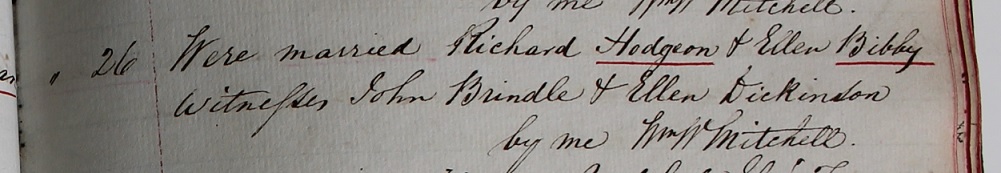 by me Wm W Mitchell.
" 26 Were married Richard Hodgson & Ellen Bibby
Witnesses John Brindle & Ellen Dickinson
by me Wm W Mitchell.